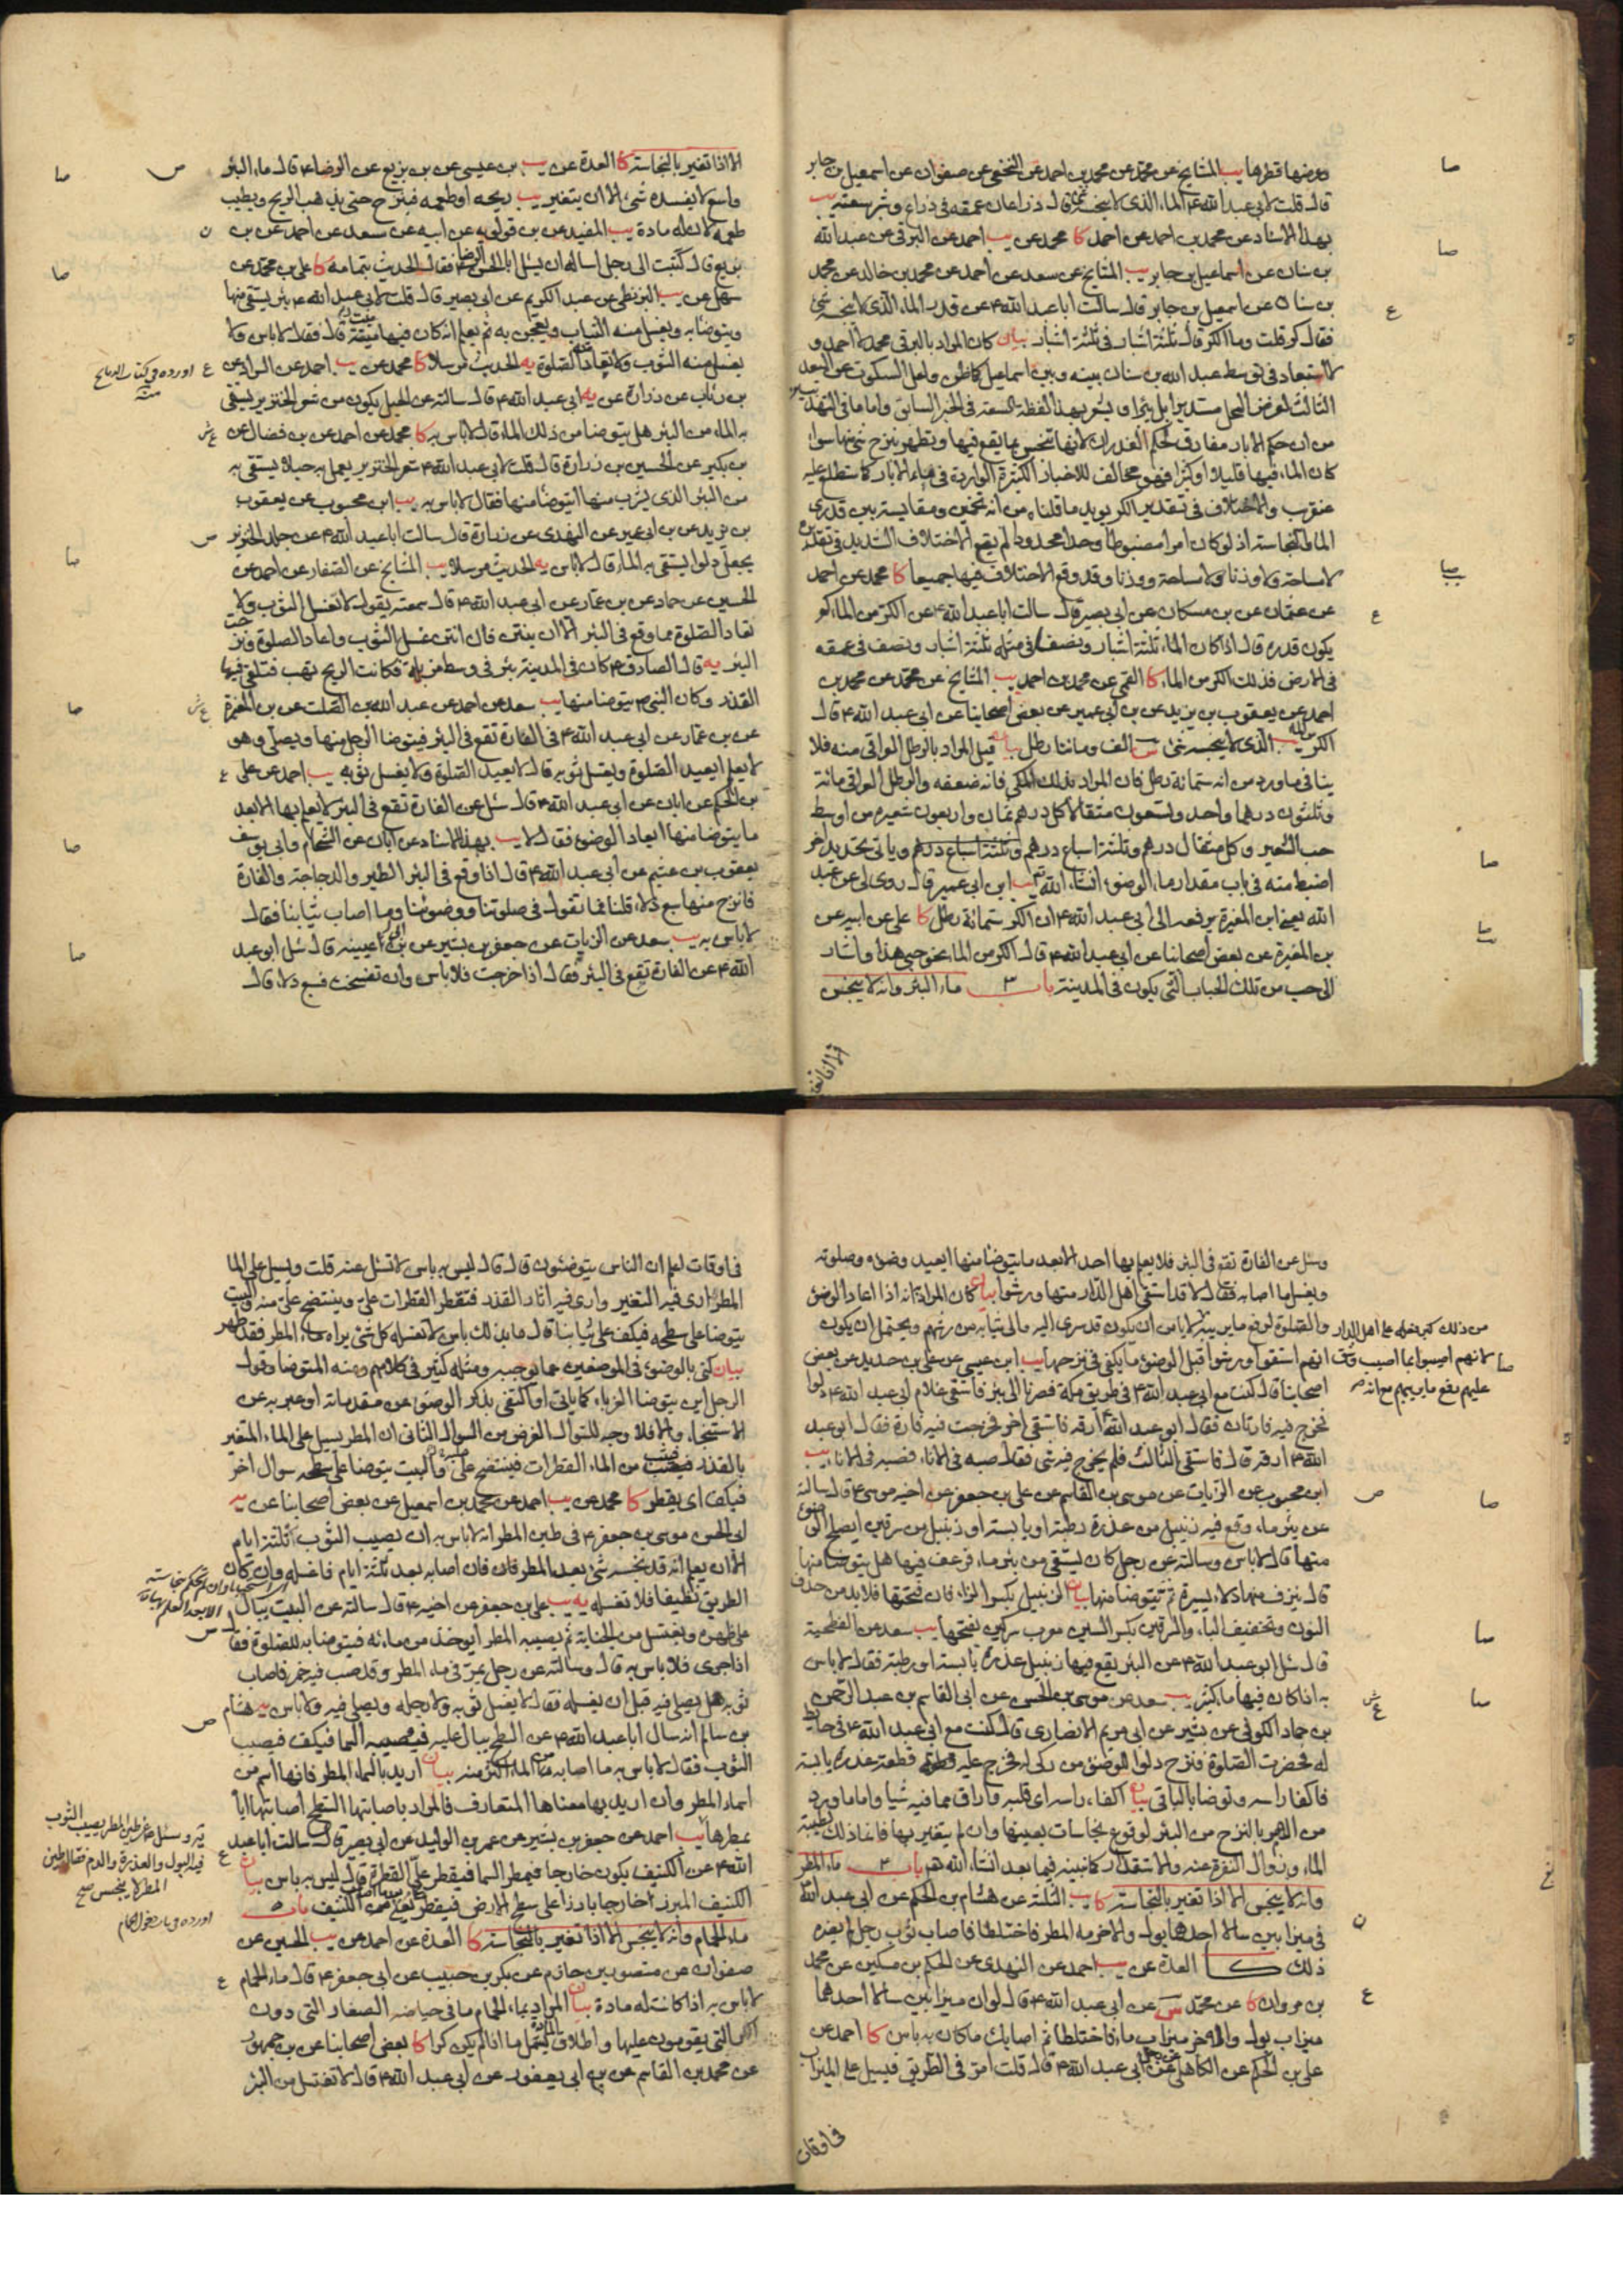 وعرضها قطرها يب المشايخ عن محمد عن محمد بن احمد عن النخعي عن صفوان عن اسمعيل بن جابر
قال قلت لابي عبد الله ع الماء الذي لا ينجسه شئ قال ذراعان عمقه في ذراع وشبر سعته يب
بهذا الاسناد عن محمد بن احمد عن احمد كا محمد عن يب احمد عن البرقي عن عبد الله
بن سنان عن اسماعيل بن جابر يب المشايخ عن سعد عن احمد عن محمد بن خالد عن محمد
بن سنان عن اسمعيل بن جابر قال سالت ابا عبد الله ع عن قدر الماء الذي لا ينجسه شئ
فقال كر قلت وما الكر قال ثلثة اشبار في ثلثة اشبار بيان كان المراد بالبرقي محمد لا احمد و
لا استبعاد في توسط عبد الله بن سنان بينه وبين اسماعيل كما ظن ولعل السكوت عن البعد
الثالث
من ان حكم الابار مفارق لحكم الغدران لانها تنجس بما يقع فيها وتطهر بنزح شئ منها سواء
كان الماء فيها قليلا او كثيرا فهو مخالف للاخبار الكثيرة الواردة في مياه الابار كما ستطلع عليه
عنقريب والاختلاف في تقدير الكر يؤيد ما قلناه من انه تخمين ومقايسة بين قدري
الماء والنجاسة اذ لو كان امرا مضبوطا وحدا محدودا لم يقع الاختلاف الشديد في تقديره
لا مساحة ولا وزنا ولا مساحة ووزنا وقد وقع الاختلاف فيها جميعا كا محمد عن احمد
عن عثمان عن بن مسكان عن ابي بصير قال سالت ابا عبد الله ع عن الكر من الماء كم
يكون قدره قال اذا كان الماء ثلثة اشبار ونصفا في مثله ثلثة اشبار ونصف في عمقه
في الارض فذلك الكر من الماء كا القمي عن محمد بن احمد يب المشايخ عن محمد عن محمد بن
احمد عن يعقوب بن يزيد عن بن ابي عمير عن بعض اصحابنا عن ابي عبد الله ع قال
الكر من الماء الذي لا ينجسه شئ الف ومائتا رطل بيان قيل المراد بالرطل العراقي منه فلا
ينافي ما ورد من انه ستمائة رطل فان المراد بذلك المكي فانه ضعفه والرطل العراقي مائة
وثلثون درهما واحد وتسعون مثقالا كل درهم ثمان واربعون شعيرة من اوسط
حب الشعير وكل مثقال درهم وثلثة اسباع درهم وياتي تحديد اخر
اضبط منه في باب مقدار ماء الوضوء انشاء الله يب ابن ابي عمير قال روي لي عن عبد
الله يعني ابن المغيرة يرفعه الى ابي عبد الله ع ان الكر ستمائة رطل كا علي عن ابيه عن
بن المغيرة عن بعض اصحابنا عن ابي عبد الله ع قال الكر من الماء نحو حبي هذا واشار
الى حب من تلك الحباب التي يكون في المدينة باب ٣ ماء البئر وانه لا ينجس
الا اذا تغير بالنجاسة كا العدة عن يب بن عيسى عن بن بزيع عن الرضا ع قال ماء البئر
واسع لا يفسده شئ الا ان يتغير يب ريحه او طعمه فينزح حتى يذهب الريح ويطيب
طعمه لان له مادة يب المفيد عن بن قولويه عن ابيه عن سعد عن احمد عن بن
بزيع قال كتبت الى رجل اساله ان يسئل ابا الحسن الرضا ع فقال الحديث بتمامه كا علي بن محمد عن
سهل عن يب البزنطي عن عبد الكريم عن ابي بصير قال قلت لابي عبد الله ع بئر يستقى منها
ويتوضا به ويغسل منه الثياب ويعجن به ثم يعلم انه كان فيها ميت قال فقال لا باس ولا
يغسل منه الثوب ولا تعاد منه الصلوة يه الحديث مرسلا كا محمد عن يب احمد عن السراد عن
بن رئاب عن زرارة عن يه ابي عبد الله ع قال سالته عن الحبل يكون من شعر الخنزير يستقى
به الماء من البئر هل يتوضا من ذلك الماء قال لا باس به كا محمد عن احمد عن بن فضال عن
بن بكير عن الحسين بن زرارة قال قلت لابي عبد الله ع شعر الخنزير يعمل به حبلا يستقى به
من البئر الذي يشرب منها ايتوضا منها فقال لا باس به يب ابن محبوب عن يعقوب
بن يزيد عن بن ابي عمير عن النهدي عن زرارة قال سالت ابا عبد الله ع عن جلد الخنزير
يجعل دلوا يستقى به الماء قال لا باس يه الحديث مرسلا يب المشايخ عن الصفار عن احمد عن
الحسين عن حماد عن بن عمار عن ابي عبد الله ع قال سمعته يقول لا تغسل الثوب ولا
تعاد الصلوة مما وقع في البئر الا ان ينتن فان انتن غسل الثوب واعاد الصلوة ونزحت
البئر يه قال الصادق ع كان في المدينة بئر في وسط مزبلة فكانت الريح تهب فتلقي فيها
القذر وكان النبي ص يتوضا منها يب سعد عن احمد عن عبد الله بن الصلت عن بن المغيرة
عن بن عمار عن ابي عبد الله ع في الفارة تقع في البئر فيتوضا الرجل منها ويصلي وهو
لا يعلم ايعيد الصلوة ويغسل ثوبه قال لا يعيد الصلوة ولا يغسل ثوبه يب احمد عن علي
بن الحكم عن ابان عن ابي عبد الله ع قال سئل عن الفارة تقع في البئر لا يعلم بها الا بعد
ما يتوضا منها ايعاد الوضوء فقال لا يب بهذا الاسناد عن ابان عن الشحام وابي يوسف
يعقوب بن عثيم عن ابي عبد الله ع قال اذا وقع في البئر الطير والدجاجة والفارة
فانزح منها سبع دلاء قلنا فما تقول في صلوتنا ووضوئنا وما اصاب ثيابنا فقال
لا باس به يب سعد عن الزيات عن جعفر بن بشير عن ابي عيينه قال سئل ابو عبد
الله ع عن الفارة تقع في البئر فقال اذا خرجت فلا باس وان تفسخت فسبع دلاء قال
اورده في كتاب
الا اذا تغير
وسئل عن الفارة تقع في البئر فلا يعلم بها احد الا بعد ما يتوضا منها ايعيد وضوءه وصلوته
ويغسل ما اصابه فقال لا قد استقى اهل الدار منها ورشوا بيان كان المراد انه اذا اعاد الوضوء
والصلوة
انهم استقوا ورشوا قبل الوضوء ما يكفي في نزحها يب ابن عيسى عن علي بن حديد عن بعض
اصحابنا قال كنت مع ابي عبد الله ع في طريق مكة فصرنا الى بئر فاستقى غلام ابي عبد الله ع دلوا
فخرج فيه فارتان فقال ابو عبد الله ارقه فاستقى اخر فخرجت فيه فارة فقال ابو عبد
الله ع ارقه قال فاستقى الثالث فلم يخرج فيه شئ فقال صبه في الاناء فصبه في الاناء يب
ابن محبوب عن الزيات عن موسى بن القاسم عن علي بن جعفر عن اخيه موسى ع قال سالته
عن بئر ماء وقع فيه زنبيل من عذرة رطبة او يابسة او زنبيل من سرقين ايصلح الوضوء
منها قال لا باس وسالته عن رجل كان يستقي من بئر ماء فرعف فيها هل يتوضا منها
قال ينزف منها دلاء يسيرة ثم يتوضا منها بيان الزنبيل بكسر الزاء فان فتحتها فلا بد من حذف
النون وتخفيف الباء والسرقين بكسر السين معرب سركين بفتحها يب سعد عن الفطحية
قال سئل ابو عبد الله ع عن البئر يقع فيها زنبيل عذرة يابسة او رطبة فقال لا باس
به اذا كان فيها ماء كثير يب سعد عن موسى بن الحسن عن ابي القاسم بن عبد الرحمن
بن حماد الكوفي عن بشير عن ابي مريم الانصاري قال كنت مع ابي عبد الله ع في حايط
له فحضرت الصلوة فنزح دلوا للوضوء من ركي له فخرج عليه قطعة عذرة يابسة
فاكفا راسه وتوضا بالباقي بيان اكفاء راسه اي قلبه واراق مما فيه شيئا واما ما ورد
من الامر بالنزح من البئر لوقوع نجاسات بعينها وان لم يتغير بها فانما ذلك لطيبة
الماء وزوال النفرة عنه والاستقذار كما نبينه فيما بعد انشاء الله هم باب ٤ ماء المطر
وانه لا ينجس الا اذا تغير بالنجاسة كا يب الثلثة عن هشام بن الحكم عن ابي عبد الله
في ميزابين سالا احدهما بول والاخر ماء المطر فاختلطا فاصاب ثوب رجل لم يضره
ذلك كا العدة عن يب احمد عن النهدي عن الحكم بن مسكين عن محمد
بن مروان كا عن محمد عن ابي عبد الله ع قال لو ان ميزابين سالا احدهما
ميزاب بول والاخر ميزاب ماء فاختلطا ثم اصابك ما كان به باس كا احمد عن
علي بن الحكم عن الكاهلي عن رجل عن ابي عبد الله ع قال قلت امر في الطريق فيسيل علي الميزاب
في اوقات
في اوقات اعلم ان الناس يتوضئون قال قال ليس به باس لا تسئل عنه قلت ويسيل علي الماء
المطر ارى فيه التغير وارى فيه اثار القذر فتقطر القطرات علي وينتضح علي منه والبيت
يتوضا على سطحه فيكف على ثيابنا قال ما بذلك باس لا تغسله كل شئ يراه ماء المطر فقد طهر
بيان كنى بالوضوء في الموضعين عما يوجبه ومثله كثير في كلامهم ومنه المتوضا وقول
الرجل اين يتوضا الغرباء كما ياتي او اكتفى بذكر الوضوء عن مقدماته او عبر به عن
الاستنجاء والا فلا وجه للسؤال الغرض من السؤال الثاني ان المطر يسيل على الماء المتغير
بالقذر فيثب من الماء القطرات فينتضح علي منه والبيت يتوضا على سطحه سوال اخر
فيكف اي يقطر كا محمد عن يب احمد عن محمد بن اسمعيل عن بعض اصحابنا عن يه
ابي الحسن موسى بن جعفر ع في طين المطر انه لا باس به ان يصيب الثوب ثلثة ايام
الا ان يعلم انه قد نجسه شئ بعد المطر فان اصابه بعد ثلثة ايام فاغسله وان كان
الطريق نظيفا فلا تغسله يه يب علي بن جعفر عن اخيه ع قال سالته عن البيت يبال
على ظهره ويغتسل من الجنابة ثم يصيبه المطر ايوخذ من مائه فيتوضا به للصلوة فقال
اذا جرى فلا باس به قال وسالته عن رجل يمر في ماء المطر وقد صب فيه خمر فاصاب
ثوبه هل يصلي فيه قبل ان يغسله فقال لا يغسل ثوبه ولا رجله ويصلي فيه ولا باس يه هشام
بن سالم انه سال ابا عبد الله ع عن السطح يبال عليه فيصيبه السماء فيكف فيصيب
الثوب فقال لا باس به ما اصابه من الماء اكثر منه بيان اريد بالسماء المطر فانها اسم من
اسماء المطر وان اريد بها معناها المتعارف فالمراد باصابتها السطح اصابتها اياه
بمطرها يب احمد عن جعفر بن بشير عن عمر بن الوليد عن ابي بصير قال سالت ابا عبد
الله ع عن الكنيف يكون خارجا فيمطر السماء فيقطر علي القطرة قال ليس به باس بيان
الكنيف المبرز خارجا بارزا على سطح الارض فيقطر الكنيف باب ٥
ماء الحمام وانه لا ينجس الا اذا تغير بالنجاسة كا العدة عن احمد عن يب الحسين عن
صفوان عن منصور بن حازم عن بكر بن حبيب عن ابي جعفر ع قال ماء الحمام
لا باس به اذا كانت له مادة بيان المراد بماء الحمام ما في حياضه الصغار التي دون
الكر التي يقومون عليها واطلاق المادة يشمل ما اذا لم يكن كرا كا بعض اصحابنا عن بن جمهور
عن محمد بن القاسم عن بن ابي يعفور عن ابي عبد الله ع قال لا تغتسل من البئر
يه وسئل ع عن طين المطر يصيب الثوب
فيه البول والعذرة والدم فقال طين
المطر لا ينجس صح
اورده في باب دخول الحمام